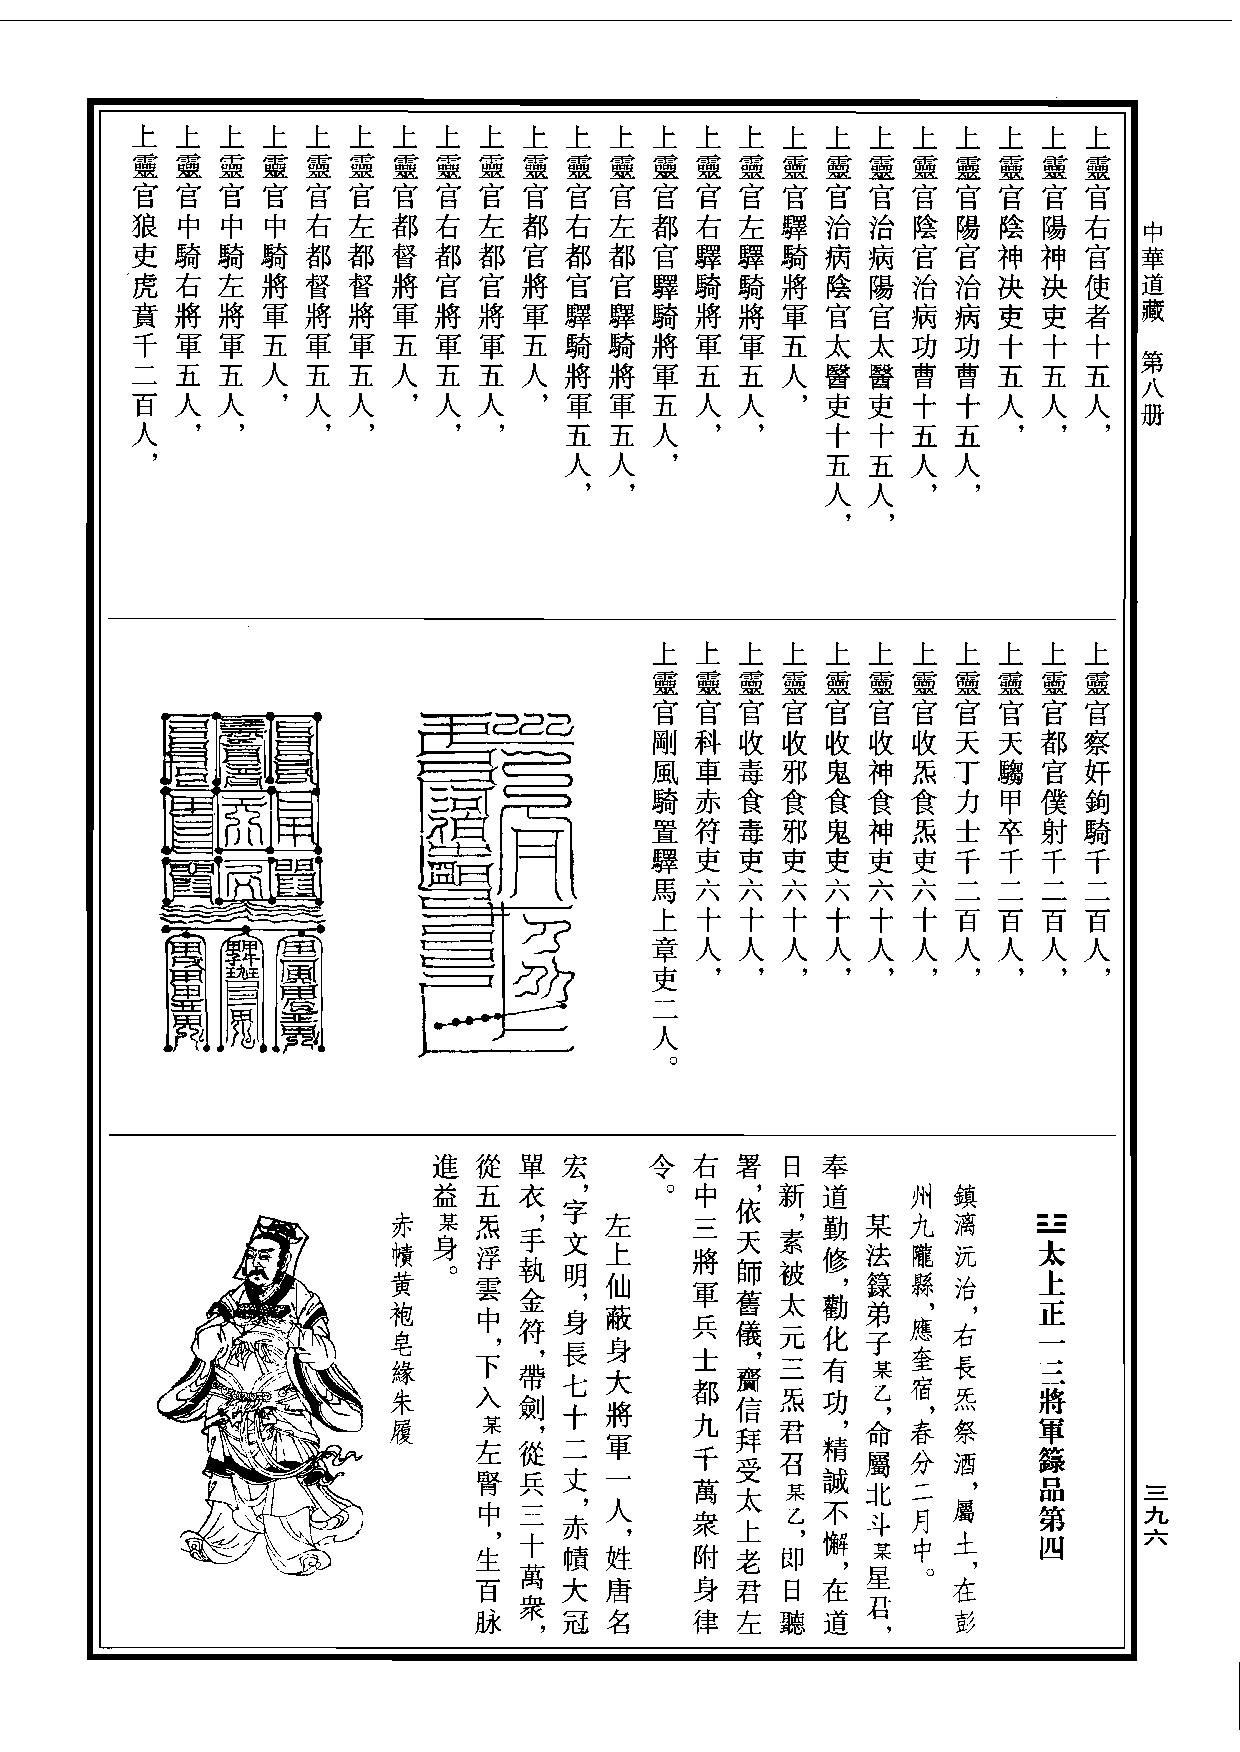 中華道藏　第八册
三九六
上靈官右官使者十五人，
上靈官陽神决吏十五人，
上靈官陰神决吏十五人，
上靈官陽官治病功曹十五人，
上靈官陰官治病功曹十五人，
上靈官治病陽官太醫吏十五人，
上靈官治病陰官太醫吏十五人，
上靈官驛騎將軍五人，
上靈官左驛騎將軍五人，
上靈官右驛騎將軍五人，
上靈官都官驛騎將軍五人，
上靈官左都官驛騎將軍五人，
上靈官右都官驛騎將軍五人，
上靈官都官將軍五人，
上靈官左都官將軍五人，
上靈官右都官將軍五人，
上靈官都督將軍五人，
上靈官左都督將軍五人，
上靈官右都督將軍五人，
上靈官中騎將軍五人，
上靈官中騎左將軍五人，
上靈官中騎右將軍五人，
上靈官狼吏虎賁千二百人，
上靈官察奸鉤騎千二百人，
上靈官都官僕射千二百人，
上靈官天騶甲卒千二百人，
上靈官天丁力士千二百人，
上靈官收炁食炁吏六十人，
上靈官收神食神吏六十人，
上靈官收鬼食鬼吏六十人，
上靈官收邪食邪吏六十人，
上靈官收毒食毒吏六十人，
上靈官科車赤符吏六十人，
上靈官剛風騎置驛馬上章吏二人。
☳太上正一三將軍籙品第四
鎮漓沅治，右長炁祭酒，屬土，在彭
州九隴縣，應奎宿，春分二月中。
某法籙弟子某乙，命屬北斗某星君，
奉道勤修，勸化有功，精誠不懈，在道
日新，素被太元三炁君召某乙，即日聽
署，依天師舊儀，齎信拜受太上老君左
右中三將軍兵士都九千萬衆附身律
令。
左上仙蔽身大將軍一人，姓唐名
宏，字文明，身長七十二丈，赤幘大冠
單衣，手執金符，帶劍，從兵三十萬衆，
從五炁浮雲中，下入某左腎中，生百脉
進益某身。
赤幘黄袍皂緣朱履